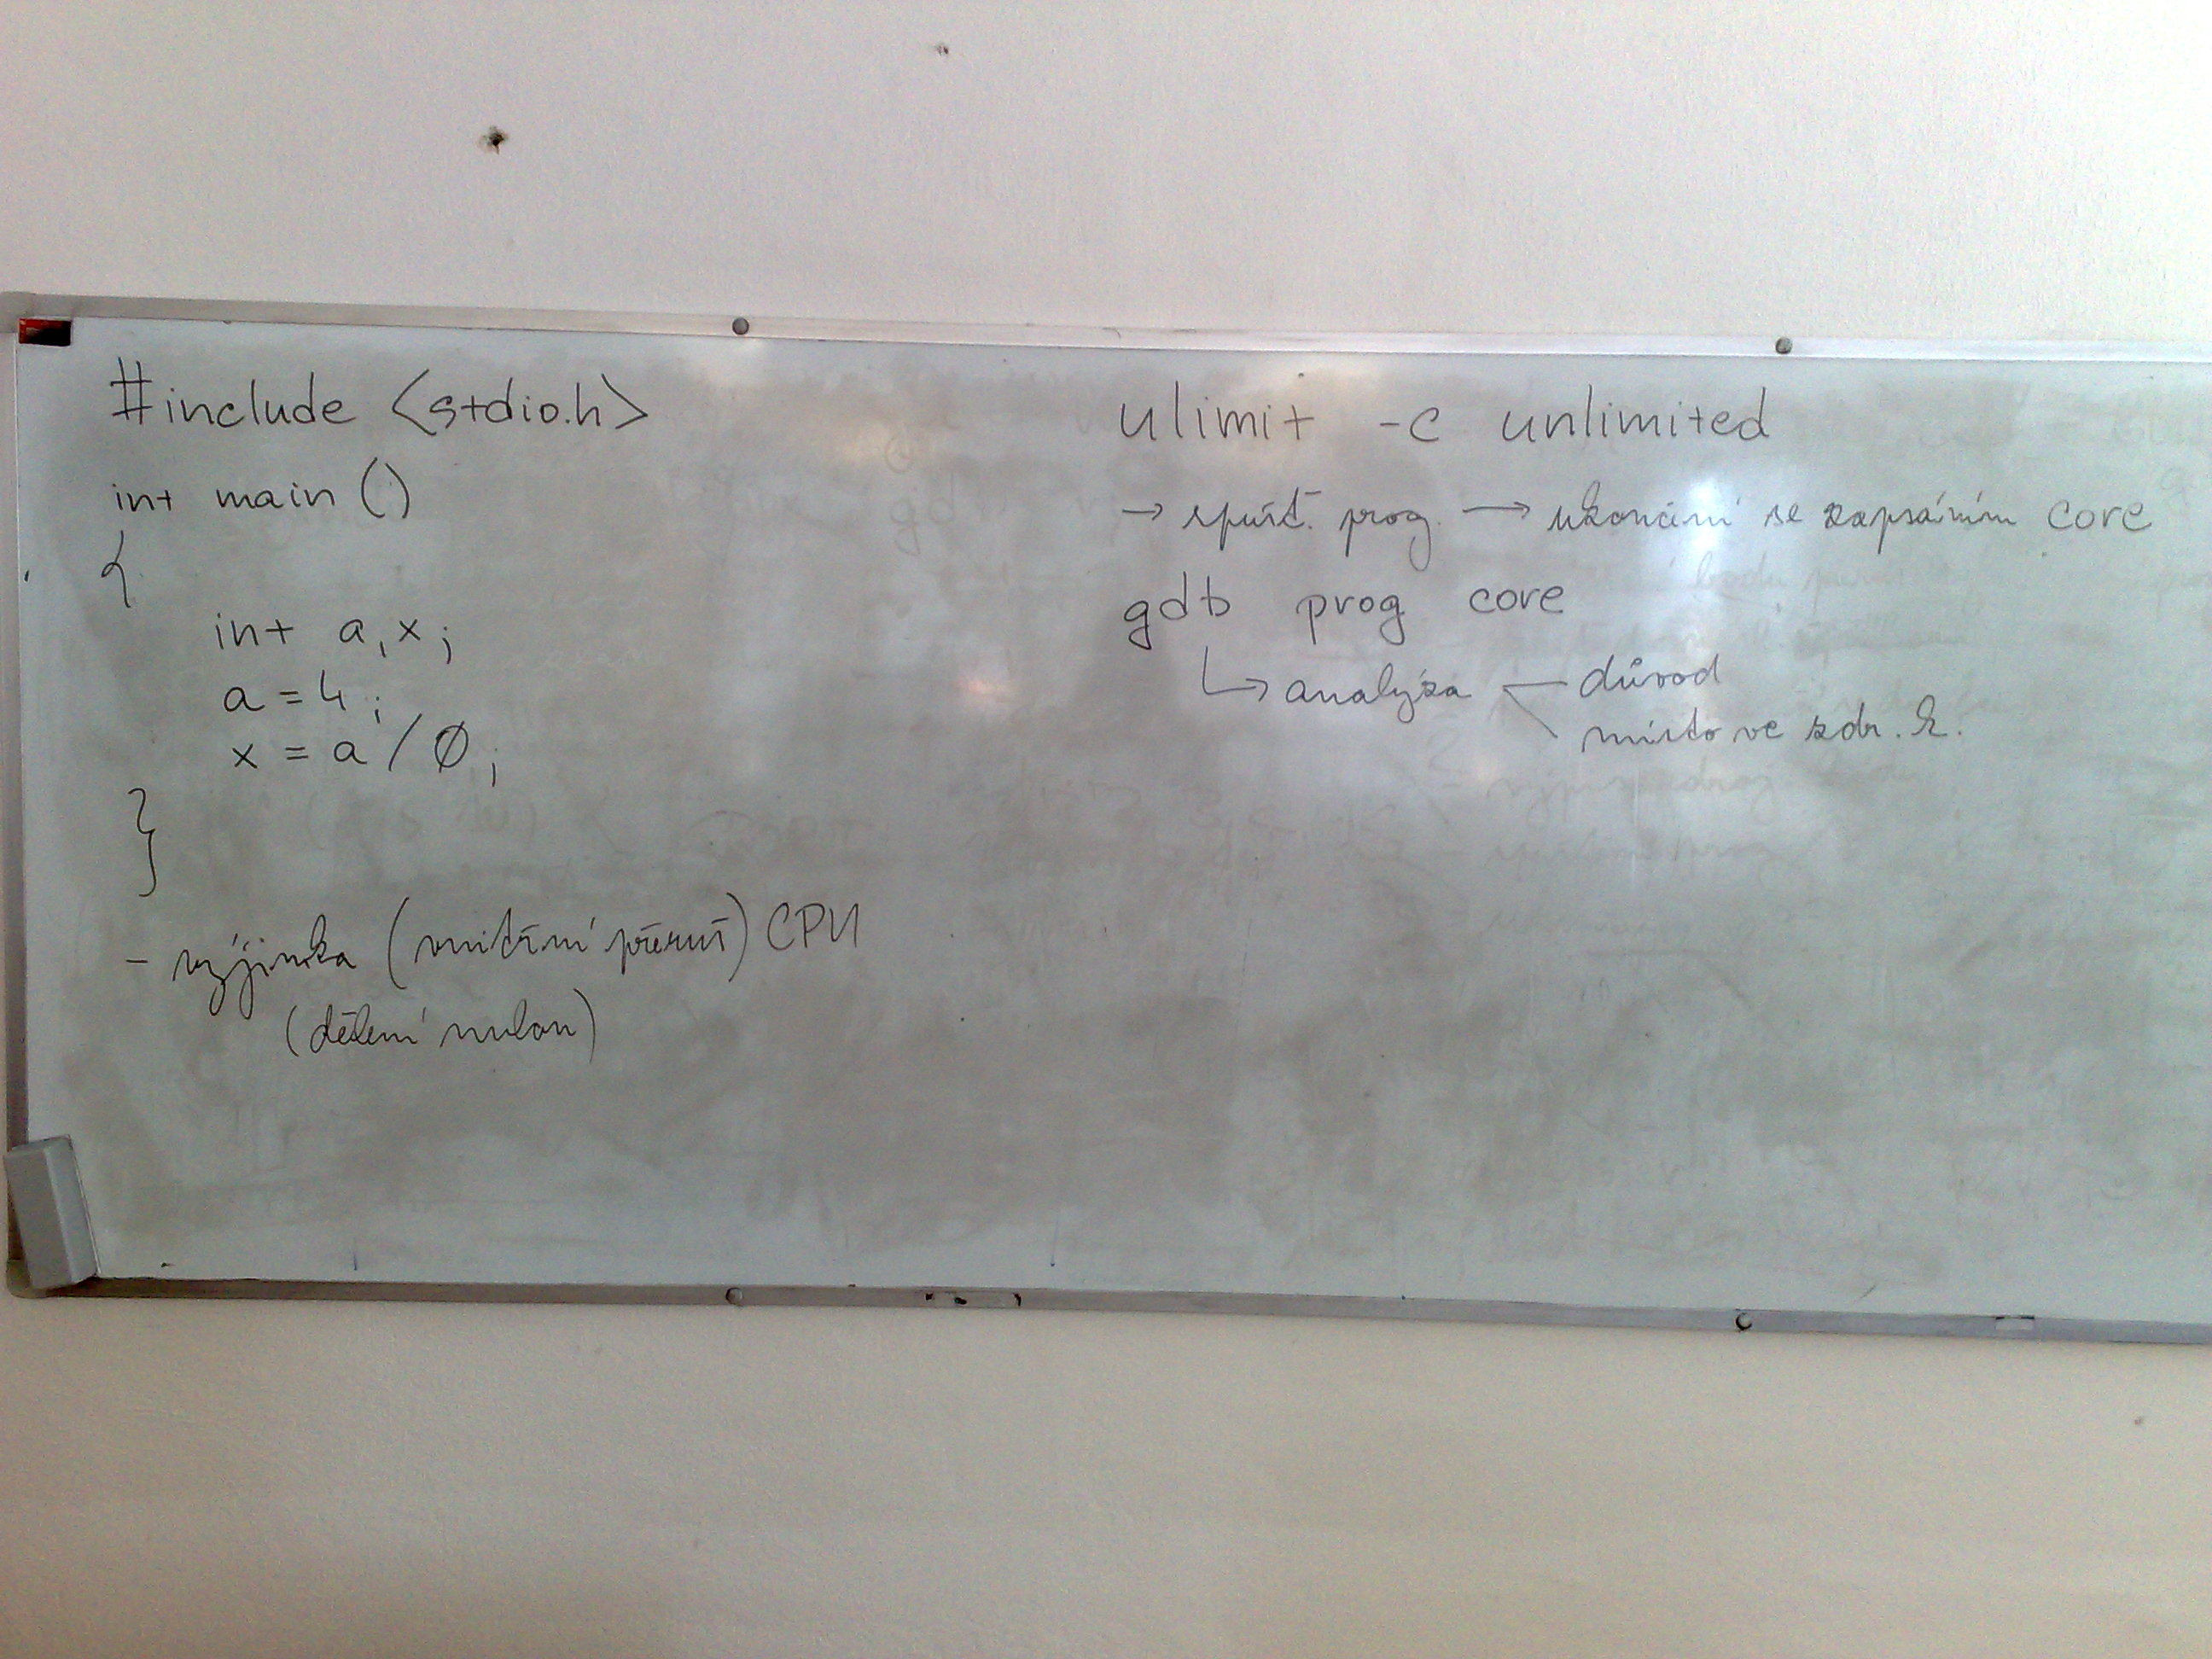 #include <stdio.h>
int main ()
{
int a,x;
a = 4;
x = a / 0;
}
- výjimka (vnitřní přeruš) CPU
(dělení nulou)
ulimit -c unlimited
→ spušť. prog. → ukončení se zapsáním core
gdb prog core
↳ analýza důvod
místo ve zdr. k.